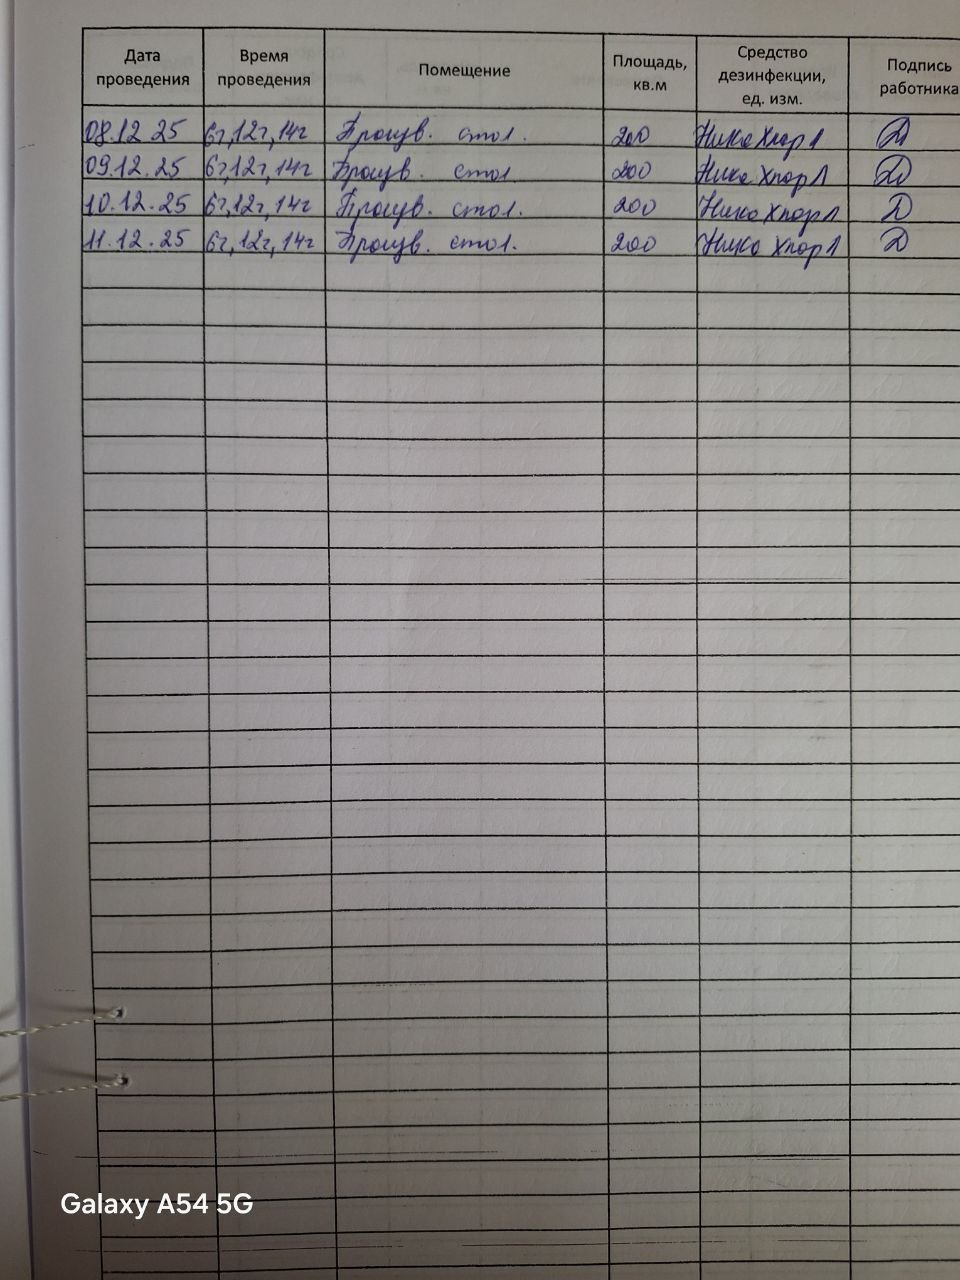 Дата проведения Время проведения Помещение Площадь, кв.м Средство дезинфекции, ед. изм. Подпись работника
08.12 25 6ч,12ч,14ч Произв. стол. 200 НикаХлор 1
09.12.25 6ч,12ч,14ч Произв. стол 200 Ника Хлор 1
10.12.25 6ч,12ч,14ч Произв. стол. 200 Ника Хлор 1
11.12.25 6ч,12ч,14ч Произв. стол. 200 Ника Хлор 1
Galaxy A54 5G